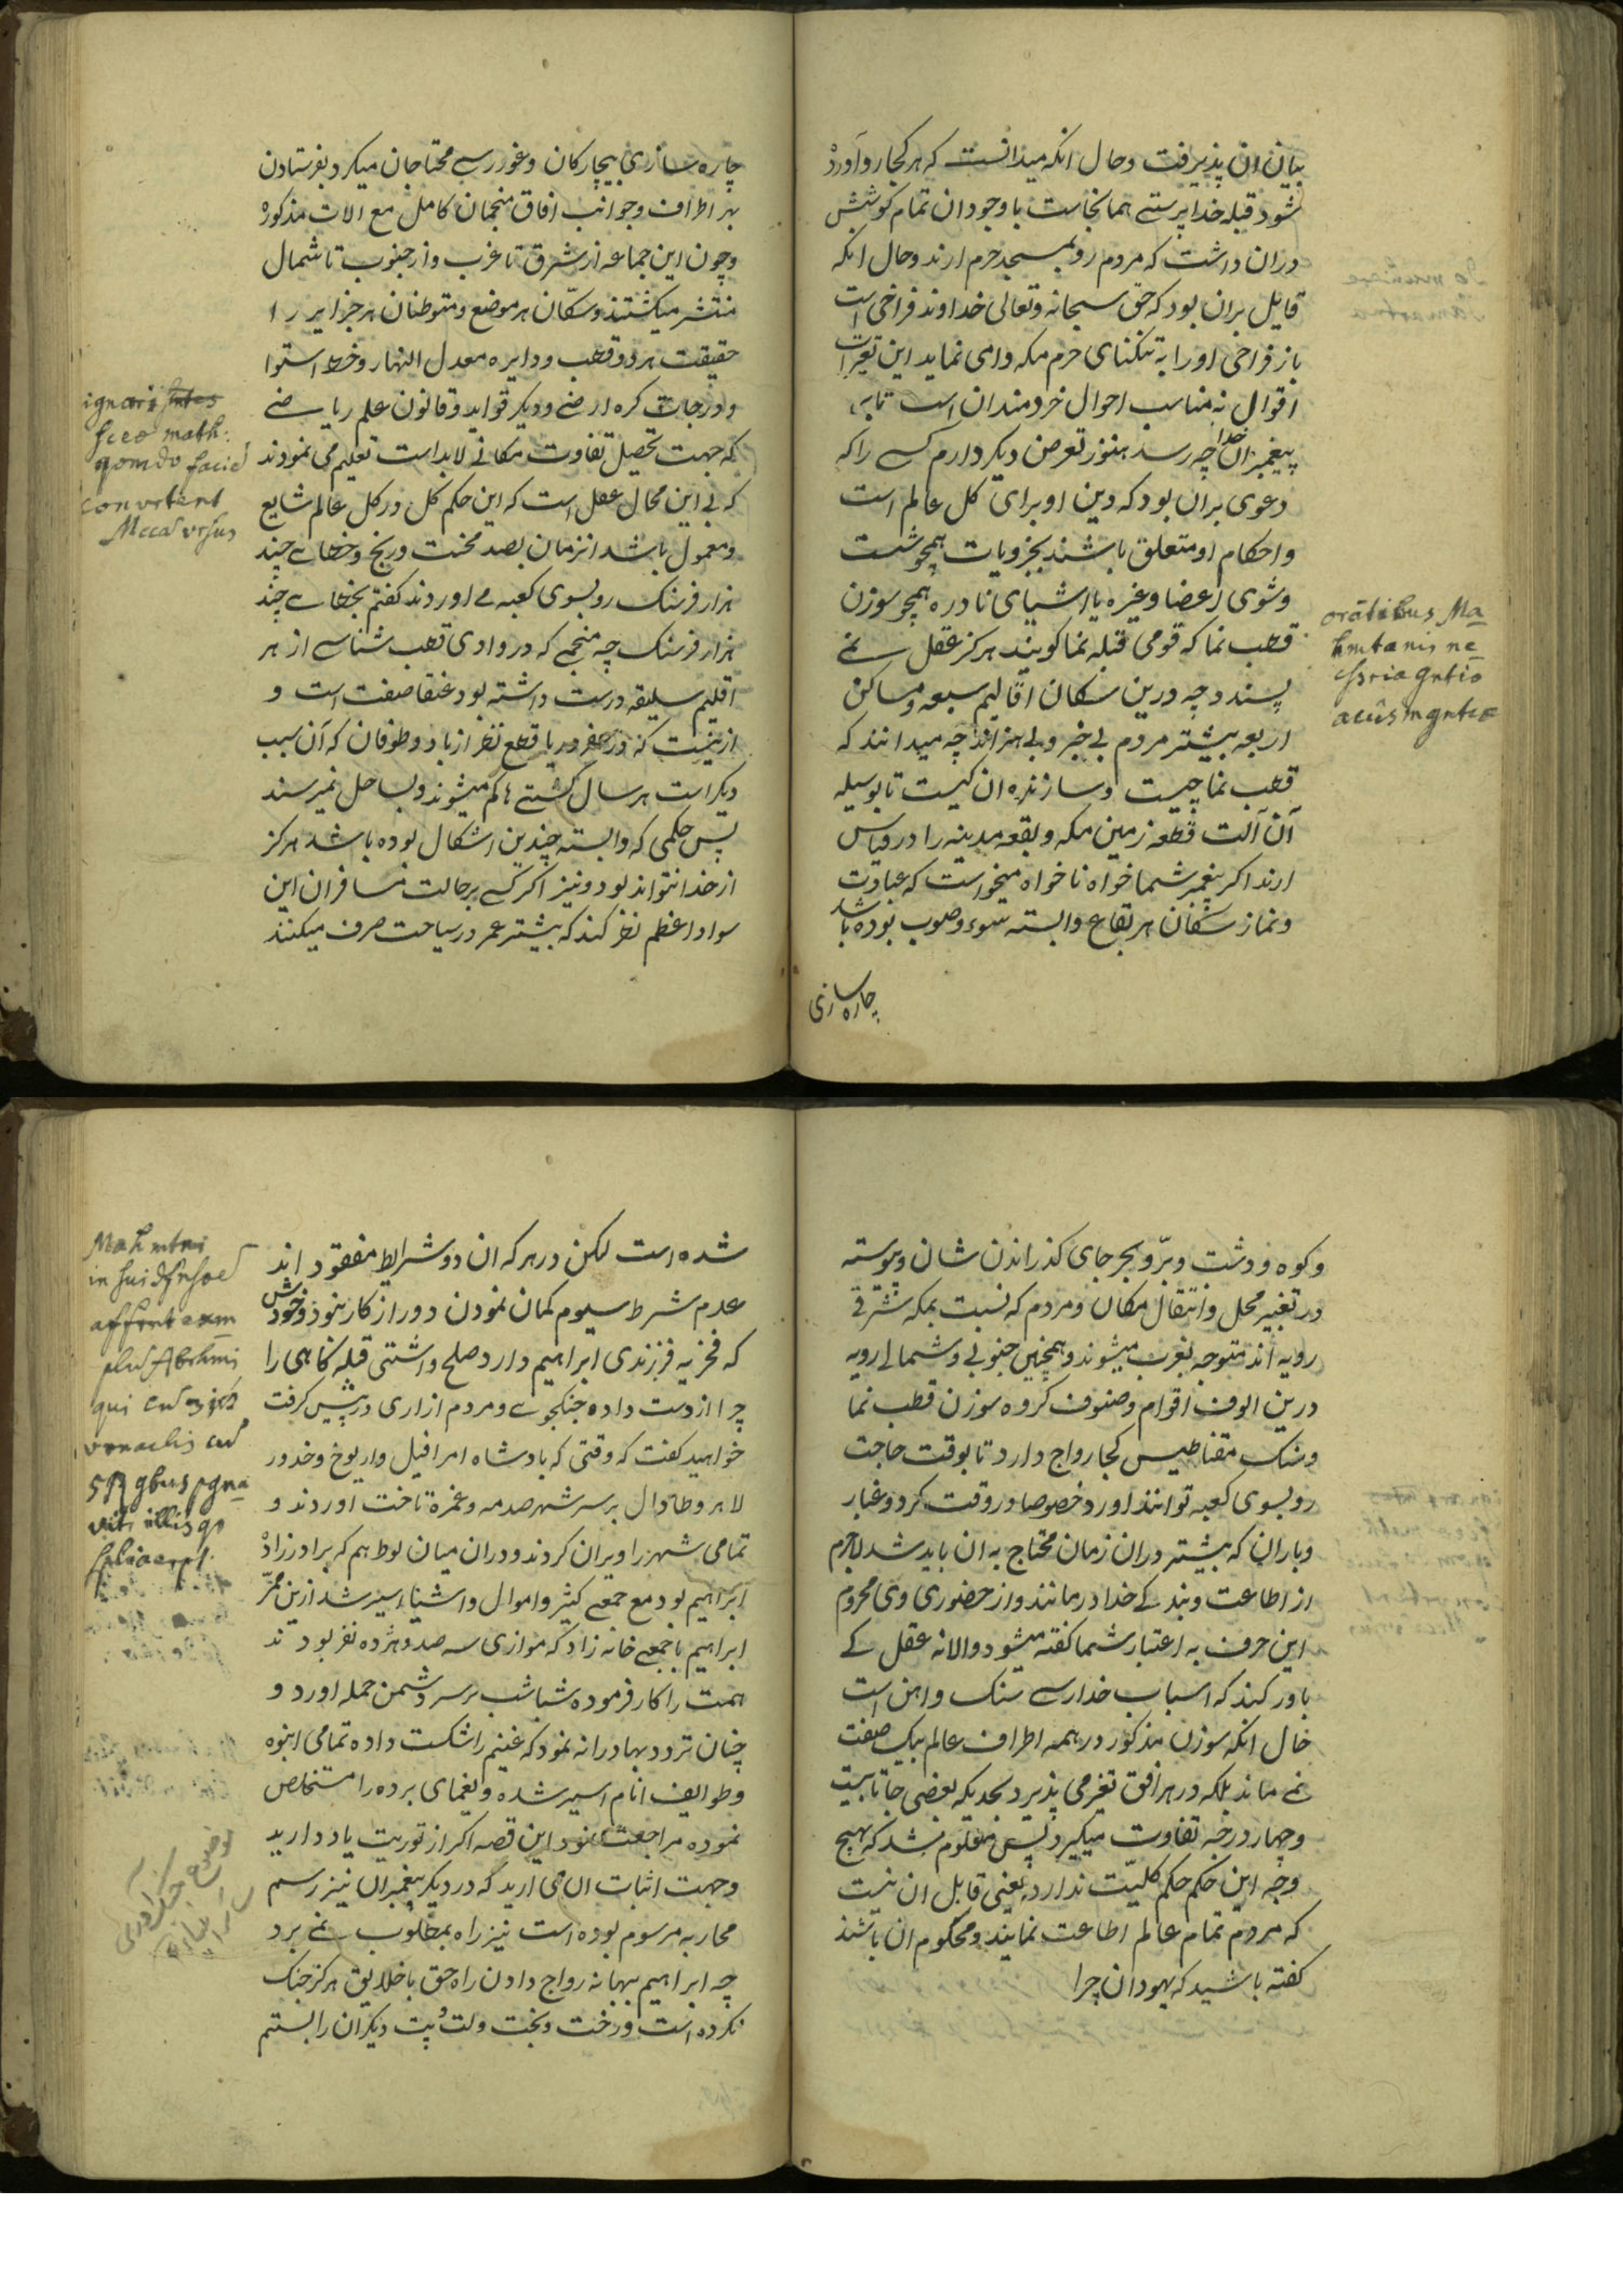 بیان ان پذیرفت وحال انکه میدانست که هر کجا رو آورد
شود قبله خدا پرستی همانجاست با وجود ان تمام کوشش
دران داشت که مردم رو بمسجد حرم ارند وحال انکه
قایل بران بود که حق سبحانه وتعالی خداوند فراخی است
باز فراخی او را به تنکنای حرم مکه وامی نماید این تغیرات
اقوال نه مناسب احوال خردمندان است تا به
پیغمبران خدا چه رسد هنوز تعرض دیکر دارم کسی را که
دعوی بران بود که دین او برای کل عالم است
واحکام او متعلق باشند بجزویات همچو شست
وشوی اعضا وغیره یا اشیای نادره همچو سوزن
قطب نما که قومی قبله نما کویند هرکز عقل نمی
پسندد چه درین سکان اقالیم سبعه ومساکن
اربعه بیشتر مردم بی خبر وبی هنر اند چه میدانند که
قطب نما چیست وسازنده ان کیست تا بوسیله
آن آلت قطعه زمین مکه وبقعه مدینه را در قیاس
ارند اکر پیغمبر شما خواه ناخواه میخواست که عبادت
ونماز سکان هر بقاع وابسته سوء وصوب بوده باشد
چاره سازی
oratibus Ma
hmtanis ne
cssria gntio
acus mgntcæ
چاره سازی بیچارکان وغوررسی محتاجان میکرد بفرستادن
بر اطراف وجوانب افاق منجمان کامل مع الات مذکوره
وچون این جماعه از شرق تا غرب واز جنوب تا شمال
منتشر میکشتند وسکان هر موضع ومتوطنان هر جزایر را
حقیقت هر دو قطب ودایره معدل النهار وخط استوا
ودرجات کره ارضی ودیکر قواید وقانون علم ریاضی
که جهت تحصیل تفاوت مکانی لابد است تعلیم می نمودند
که بی این محال عقل است که این حکم کل در کل عالم شایع
ومعمول باشد انزمان بصد محنت ورنج وخطای چند
هزار فرسنک رو بسوی کعبه می اوردند کفتم بخطای چند
هزار فرسنک چه منجمی که در وادی قطب شناسی از هر
اقلیم سلیقه درست داشته بود عنقا صفت است و
ازینست که در سفر دریا قطع نظر از باد وطوفان که آن سبب
دیکر است هر سال کشتی ها کم میشوند وبساحل نمیرسند
پس حکمی که وابسته چندین اشکال بوده باشد هرکز
از خدا نتواند بود ونیز اکر کسی بر حالت مسافران این
سواد اعظم نظر کند که بیشتر عمر در سیاحت صرف میکنند
ignari
sceo math:
qomdo facie
convrtent
Mecca vrsus
وکوه ودشت وبرّ وبحر جای کذراندن شان وپیوسته
در تغییر محل وانتقال مکان ومردم که نسبت بمکه شرقی
رویه اند متوجه بغرب میشوند وهمچنین جنوبی وشمالی رویه
درین الوف اقوام وصنوف کروه سوزن قطب نما
وسنک مقناطیس کجا رواج دارد تا بوقت حاجت
رو بسوی کعبه توانند اورد خصوصا در وقت کرد وغبار
وباران که بیشتر دران زمان محتاج به ان باید شد لاجرم
از اطاعت وبندکی خدا درمانند واز حضوری وی محروم
این حرف به اعتبار شما کفته میشود والا نه عقل کی
باور کند که اسباب خدارسی سنک واهن است
حال انکه سوزن مذکور در همه اطراف عالم بیک صفت
نمی ماند بلکه در هر افق تغیر می پذیرد بحدیکه بعضی جا تا بیست
وچهار درجه تفاوت میکیرد پس معلوم شد که بهیچ
وجه این حکم حکم کلیّت ندارد یعنی قابل ان نیست
که مردم تمام عالم اطاعت نمایند ومحکوم ان باشند
کفته باشید که یهودان چرا
شده است لکن در هر که ان دو شرایط مفقود اند
عدم شرط سیوم کمان نمودن دور از کار بنود وخودش
که فخر به فرزندی ابراهیم دارد صلح واشتی قبله کاهی را
چرا از دست داده جنکجوی ومردم ازاری در پیش کرفت
خواهید کفت که وقتی که بادشاه امرافیل واریوخ وخدور
لاهر وطادال بر سر شهر صدمه وغمره تاخت اوردند و
تمامی شهر را ویران کردند ودران میان لوط هم که برادرزاده
ابراهیم بود مع جمعی کثیر واموال واشیا اسیر شد ازین ممر
ابراهیم با جمعی خانه زاد که موازی سه صد وهژده نفر بودند
همت را کار فرموده شباشب بر سر دشمن حمله اورد و
چنان تردد بهادرانه نمود که غنیم را شکست داده تمامی انبوه
وطوایف انام اسیر شده ویغمای برده را مستخلص
نموده مراجعت نمود این قصه اکر از توریت یاد دارید
وجهت اثبات ان می ارید که در دیکر پیغمبران نیز رسم
محاربه مرسوم بوده است نیز راه بمطلوب نمی برد
چه ابراهیم ببهانه رواج دادن راه حق با خلایق هرکز جنک
نکرده است ورخت وبخت ولت وپت دیکران را بستم
Mahmtni
in sui dfnsoe
affrnt exm
plu Abrhmi
qui cu
vrnaclis cu
5 rgbus pgna
vit illis qo